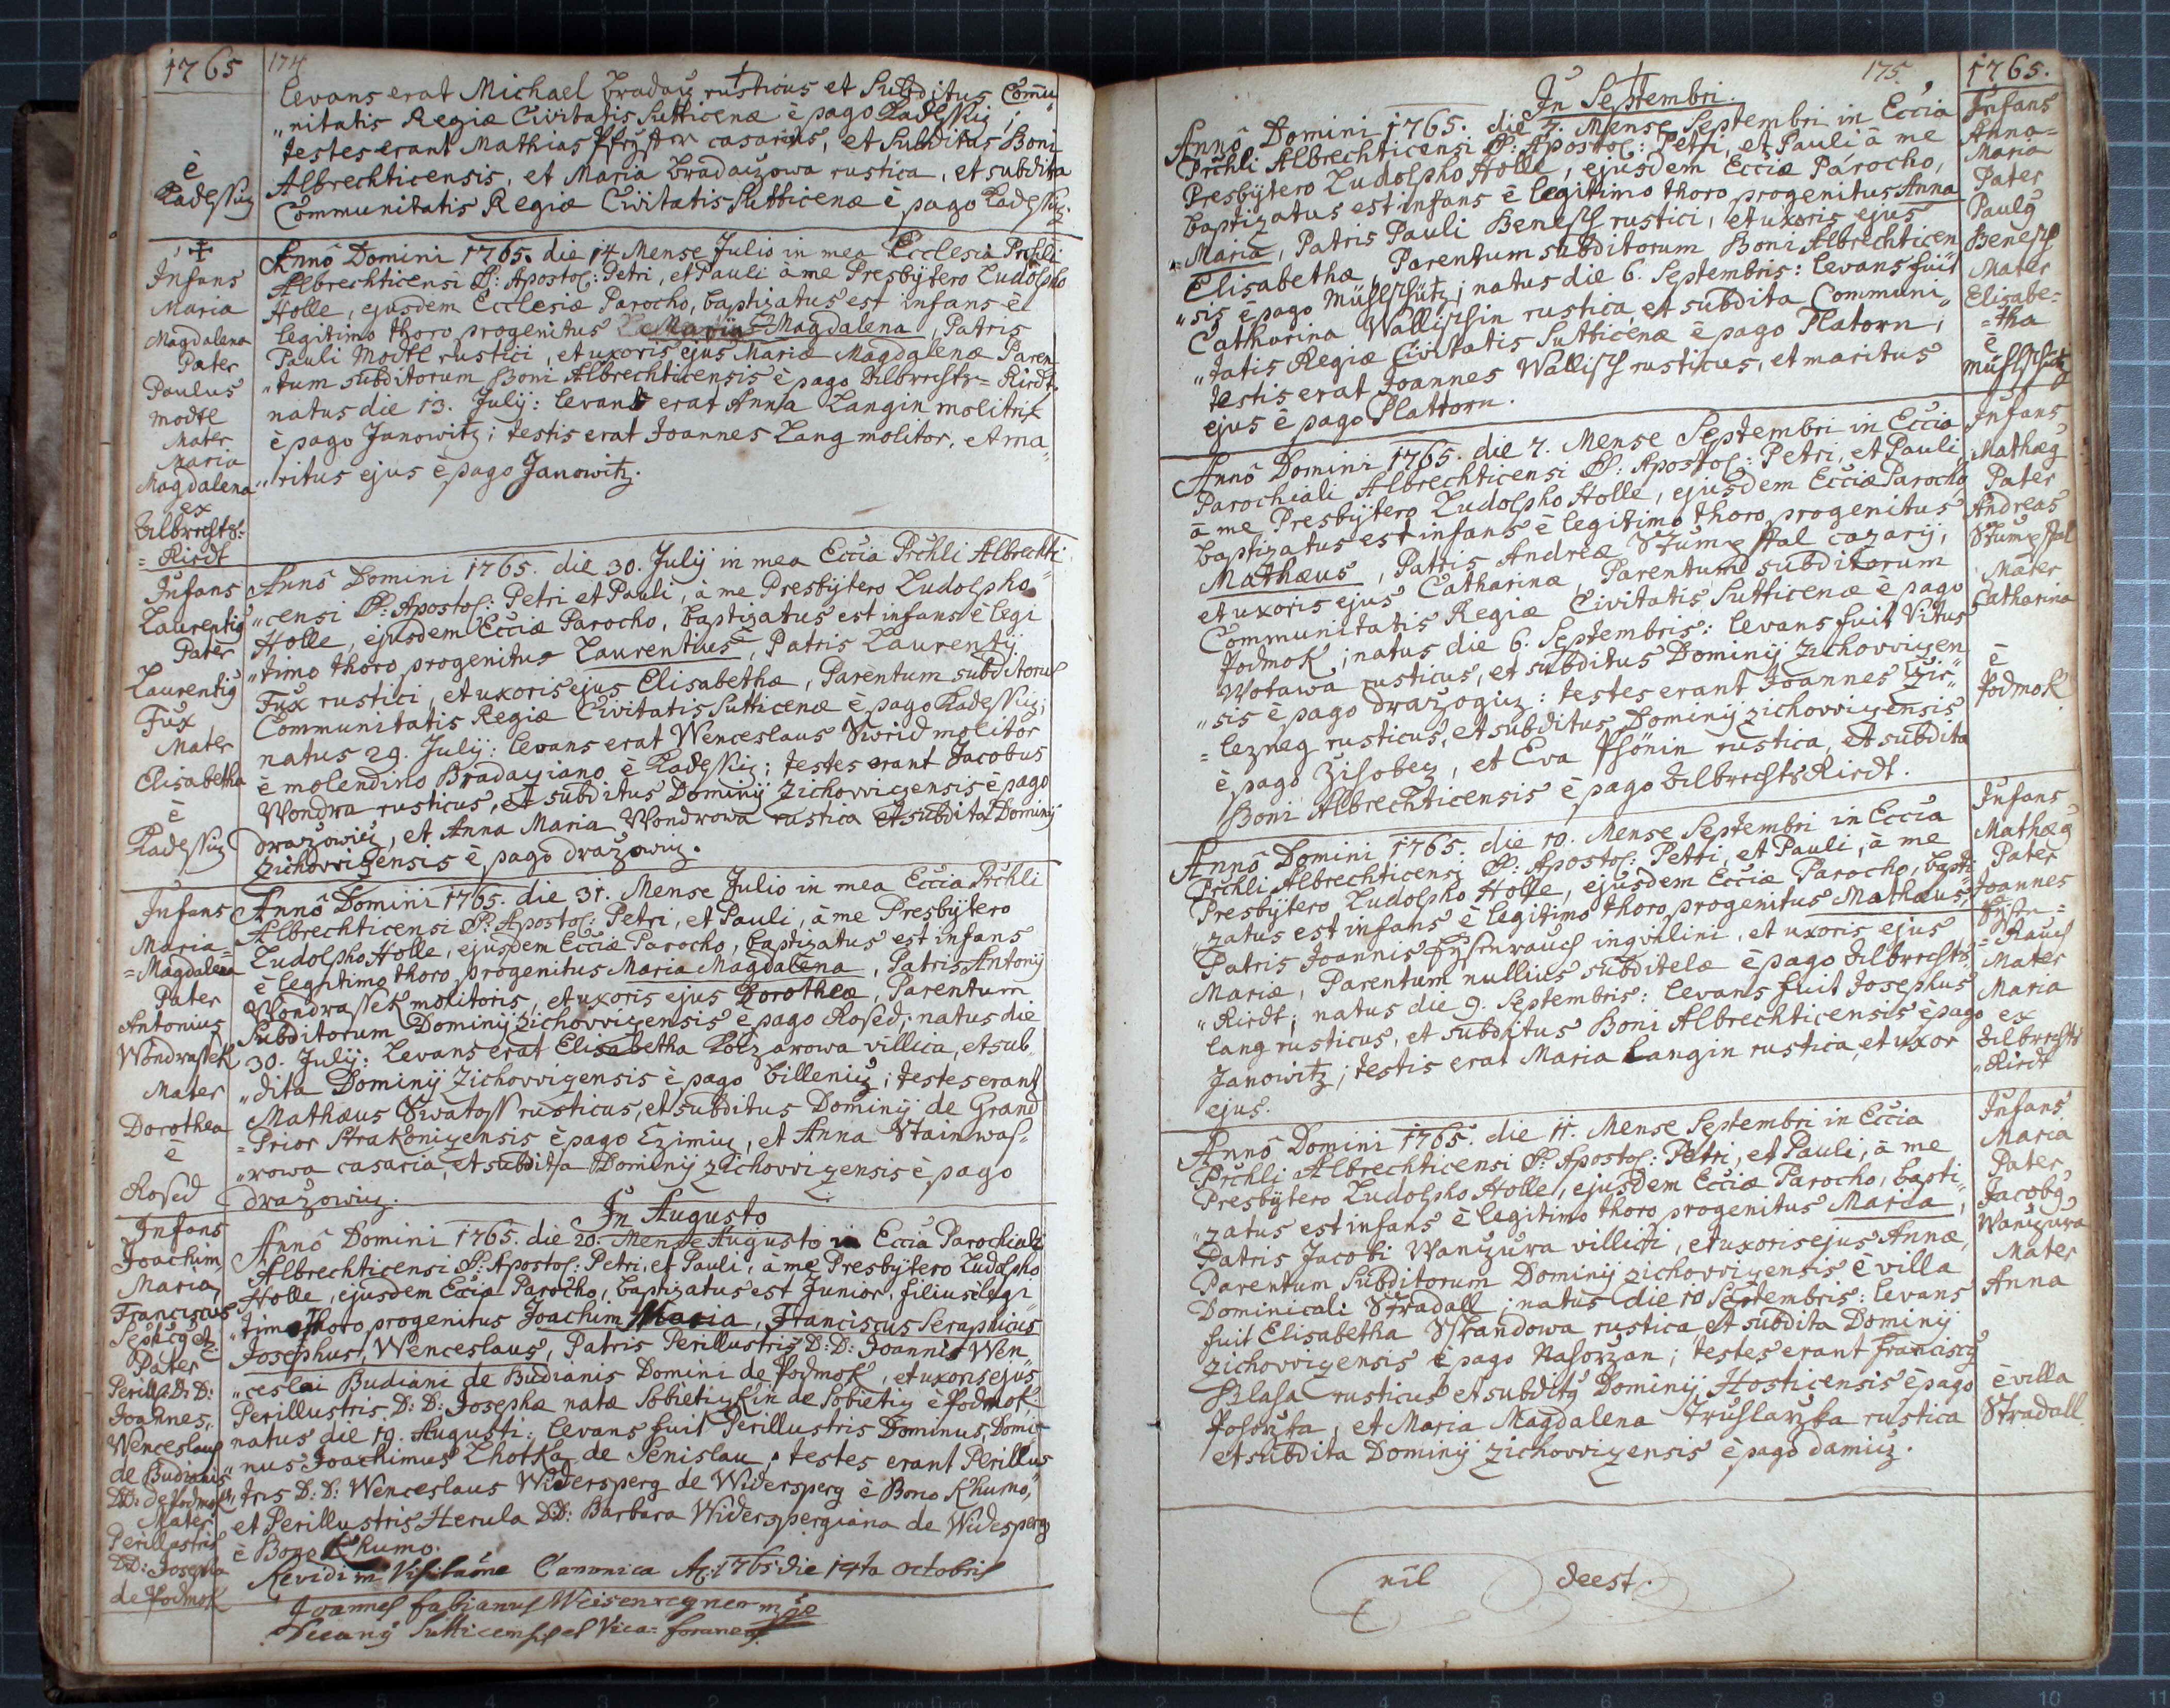 1765
174
levans erat Michael Braday rusticus et Subditus Comu„
„nitatis Regiæ Civitatis Sutticenæ è pago Kadeſſiz;
testes erant Mathias casarius, et Subditus Boni
Albrechticensis, et Maria Bradaizowa rustica, et subdita
Communitatis Regiæ Civitatis Sutticenæ è pago Kadeſſiz.
è
Kadeſſiz
Infans
Maria
Magdalena
Pater
Paulus
Modtl
Mater
Maria
Magdalena
ex
Albrechts=
=Riedt
Annô Domini 1765. die 14 Mense Julio in mea Ecclesia Prchli
Albrechticensi SS: Apostol: Petri, et Pauli à me Presbÿtero Ludolpho
Holle, ejusdem Ecclesiæ Parocho, baptizatus est infans è
legitimo thoro progenitus Maria Magdalena, Patris
Pauli Modtl rustici, et uxoris ejus Mariæ Magdalenæ Paren„
„tum subditorum Boni Albrechticensis è pago Albrechts=Riedt,
natus die 13. Julÿ: levans erat Anna Langin molitrix
è pago Janowitz; testis erat Joannes Lang molitor, et ma„
„ritus ejus è pago Janowitz.
Infans
Laurentiꝰ
Pater
Laurentiꝰ
Fux
Mater
Elisabetha
è
Kadeſſiz
Annô Domini 1765. die 30. Julÿ in mea Eccia Prchli Albrechti„
„censi SS: Apostol: Petri et Pauli, à me Presbÿtero Ludolpho
Holle, ejusdem Ecciæ Parocho, baptizatus est infans è legi
„timo thoro progenitus Laurentius, Patris Laurentÿ
Fux rustici, et uxoris ejus Elisabethæ, Parentum subditorum
Communitatis Regiæ Civitatis Sutticenæ è pago Kadeſſiz;
natus 29. Julÿ: levans erat Wenceslaus Swrid molitor
è molendino Bradayiano è Kadeſſiz; testes erant Jacobus
Wondra rusticus, et subditus Dominÿ Zichovvizensis è pago
drazowiz, et Anna Maria Wondrowa rustica et subdita Dominÿ
Zichovvizensis è pago drazowiz.
Infans
Maria=
=Magdalena
Pater
Antonius
Wondraſſek
Mater
Dorothea
è
Rosed
Annô Domini 1765. die 31. Mense Julio in mea Eccia Prchli
Albrechticensi SS: Apostol: Petri, et Pauli, à me Presbÿtero
Ludolpho Holle, ejusdem Ecciæ Parocho, baptizatus est infans
è legitimo thoro progenitus Maria Magdalena, Patris Antonÿ
Wondraſſek molitoris, et uxoris ejus Dorotheæ, Parentum
Subditorum Dominÿ Zichovvizensis è pago Rosed; natus die
30. Julÿ: Levans erat Elisabetha Koczarowa villica, et sub„
„dita Dominÿ Zichovvizensis è pago Billeniz; testes erant
Mathæus Swatoſſ rusticus, et subditus Dominÿ de Grand
=Prior Strakonizensis è pago Czimiz, et Anna Stainwas=
„rowa casaria, et subdita Dominÿ Zichovvizensis è pago
drazowiz.
In Augusto
Infans
Joachim
Maria,
Franciscus
Seph̄icꝰ etc:
Pater
Perill: D: D:
Joannes,
Wenceslaus
de Budianis
DD: de Podmok
Mater
Perillustris
DD: Josepha
de Podmok
Annô Domini 1765. die 20. Mense Augusto in Eccia Parochiali
Albrechticensi SS: Apostol: Petri, et Pauli, à me Presbÿtero Ludolpho
Holle, ejusdem Ecciæ Parocho, baptizatus est Junior, filius è legi„
„timo thoro progenitus Joachim Maria, Franciscus Seraphicus
Josephus, Wenceslaus, Patris Perillustris D: D: Joannis Wen„
„ceslai Budiani de Budianis Domini de Podmok, et uxoris ejus
Perillustris D: D: Josephæ natæ Sobietizkin de Sobietiz è Podmok
natus die 19. Augusti: levans fuit Perillustris Dominus, Domi„
„nus Joachimus Lhotka de Senislau; testes erant Perillus„
„tris D: D: Wenceslaus Widersperg de Widersperg è Bono Khumo,
et Perillustris Herula DD: Barbara Widerspergiana de Widesperg
è Bono Khumo.
Revidi in Visitaōne Canonica Aō: 1765 die 14ta Octobris
Joannes Fabianus Weisenregner mpo
Decanꝰ Sutticensis et Vica: foraneꝰ
175.
1765.
In Septembri.
Annô Domini 1765. die 7. Mense Septembri in Eccia
Prchli Albrechticensi SS: Apostol: Petri, et Pauli à me
Presbÿtero Ludolpho Holle, ejusdem Ecciæ Parocho,
baptizatus est infans è legitimo thoro progenitus Anna
=Maria, Patris Pauli Benesch rustici, et uxoris ejus
Elisabethæ, Parentum subditorum Boni Albrechticen
„sis è pago Mühlschütz; natus die 6. Septembris: levans fuit
Catharina Wallischin rustica, et subdita Communi„
„tatis Regiæ Civitatis Sutticenæ è pago Platorn;
testis erat Joannes Wallisch rusticus, et maritus
ejus è pago Plattorn.
Infans
Anna=
Maria
Pater
Paulꝰ
Benesch
Mater
Elisabe=
=tha
è
Mühlschütz
Annô Domini 1765. die 7. Mense Septembri in Eccia
Parochiali Albrechticensi SS: Apostol: Petri, et Pauli
à me Presbÿtero Ludolpho Holle, ejusdem Ecciæ Parocho,
baptizatus est infans è legitimo thoro progenitus
Mathæus, Patris Andreæ Stumpffal cazarÿ,
et uxoris ejus Catharinæ, Parentum subditorum
Communitatis Regiæ Civitatis Sutticenæ è pago
Podmok; natus die 6. Septembris: levans fuit Vitus
Wotawa rusticus, et subditus Dominÿ Zichovvizen
„sis è pago drazogiz: testes erant Joannes Zir„
=lezneg rusticus, et subditus Dominÿ Zichovvizensis
è pago Zihobez, et Eva Phönin rustica, et subdita
Boni Albrechticensis è pago AlbrechtsRiedt.
Infans
Mathæꝰ
Pater
Andreas
Stumpffal
Mater
Catharina
è
Podmok
Annô Domini 1765. die 10. Mense Septembri in Eccia
Prchli Albrechticensi SS: Apostol: Petri, et Pauli, à me
Presbÿtero Ludolpho Holle, ejusdem Ecciæ Parocho, bapti„
„zatus est infans è legitimo thoro progenitus Mathæus,
Patris Joannis Eÿsenrauch inqvilini, et uxoris ejus
Mariæ, Parentum nullius subditelæ è pago Albrechts„
„Riedt; natus die 9. Septembris: levans fuit Josephus
lang rusticus, et subditus Boni Albrechticensis è pago
Janowitz; testis erat Maria Langin rustica, et uxor
ejus.
Infans
Mathæꝰ
Pater
Joannes
Eÿsen=
=Rauch
Mater
Maria
ex
Albrechts
„Riedt
Annô Domini 1765. die 11. Mense Septembri in Eccia
Prchli Albrechticensi SS: Apostol: Petri, et Pauli, à me
Presbÿtero Ludolpho Holle, ejusdem Ecciæ Parocho, bapti„
„zatus est infans è legitimo thoro progenitus Maria,
Patris Jacobi Wanizura villici, et uxoris ejus Annæ,
Parentum Subditorum Dominÿ Zichovvizensis è villa
Dominicali Stradall; natus die 10 Septembris: levans
fuit Elisabetha Skrandowa rustica et subdita Dominÿ
Zichovvizensis è pago Nahorzan; testes erant Franciscꝰ
Blaha rusticus et subditꝰ Dominÿ Hosticensis è pago
Pohorzka, et Maria Magdalena Truhlarzka rustica
et subdita Dominÿ Zichovvizensis è pago damiz.
Infans
Maria
Pater
Jacobꝰ
Wanizura
Mater
Anna
è villa
Stradall
nil deest.